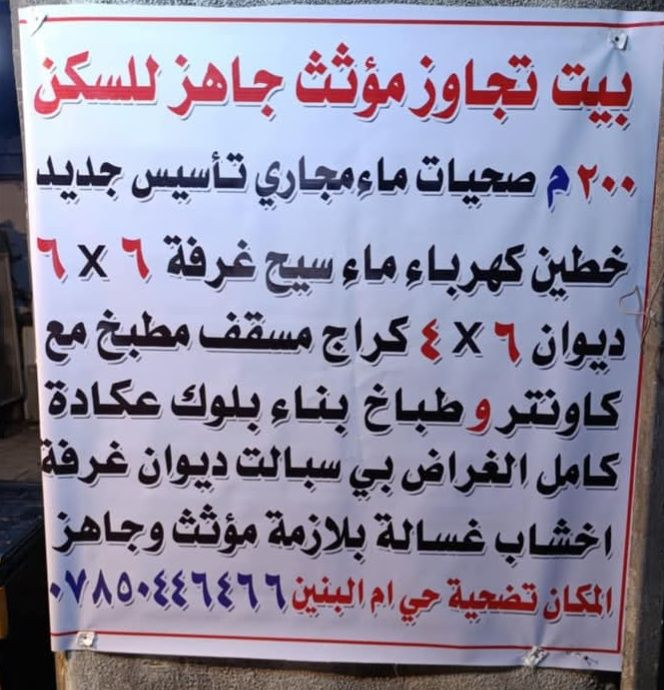 بيت تجاوز مؤثث جاهز للسكن
٢٠٠ م صحيات ماء مجاري تأسيس جديد
خطين كهرباء ماء سيح غرفة ٦ X ٦
ديوان ٦ X ٤ كراج مسقف مطبخ مع
كاونتر و طباخ بناء بلوك عكادة
كامل الغراض بي سبالت ديوان غرفة
اخشاب غسالة بلازمة مؤثث وجاهز
المكان تضحية حي ام البنين ٠٧٨٥٠٤٤٦٤٦٦